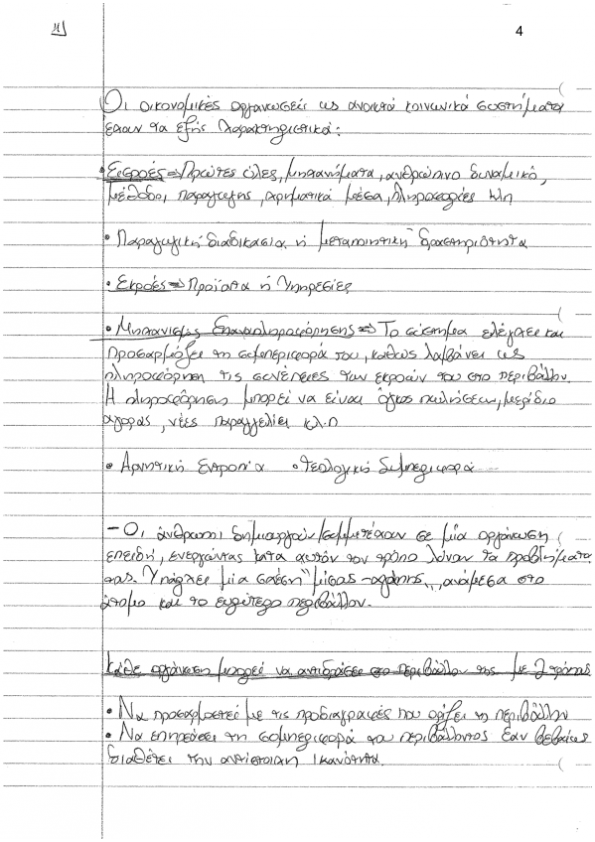 4
Οι οικονομικές οργανώσεις ως ανοικτά κοινωνικά συστήματα
έχουν τα εξής χαρακτηριστικά:
• Εισροές ⇒ Πρώτες ύλες, μηχανήματα, ανθρώπινο δυναμικό,
μέθοδοι παραγωγής, χρηματικά μέσα, πληροφορίες κλπ
• Παραγωγική διαδικασία ή μεταποιητική δραστηριότητα
• Εκροές ⇒ Προϊόντα ή Υπηρεσίες
• Μηχανισμός Επαναπληροφόρησης ⇒ Το σύστημα ελέγχει και
Προσαρμόζει τη συμπεριφορά του, καθώς λαμβάνει ως
πληροφόρηση τις συνέπειες των εκροών του στο περιβάλλον.
Η πληροφόρηση μπορεί να είναι όγκος πωλήσεων, μερίδιο
αγοράς, νέες παραγγελίες κλ.π
• Αρνητική Εντροπία • Τελολογική Συμπεριφορά
– Οι άνθρωποι δημιουργούν/συμμετέχουν σε μία οργάνωση
επειδή, ενεργώντας κατά αυτόν τον τρόπο λύνουν τα προβλήματα
τους. Υπάρχει μία σχέση "μίσους-αγάπης", ανάμεσα στο
άτομο και το ευρύτερο περιβάλλον.
Κάθε οργάνωση μπορεί να αντιδράσει στο περιβάλλον της με 2 τρόπους
• Να προσαρμοστεί με τις προδιαγραφές που ορίζει τη περιβάλλον
• Να επηρεάσει τη συμπεριφορά του περιβάλλοντος εαν βεβαίως
διαθέτει την αντίστοιχη ικανότητα.